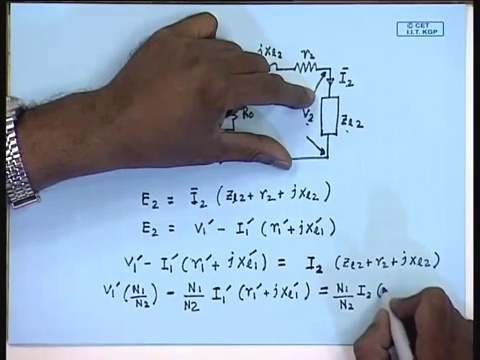 © CET
I.I.T. KGP
jxl2 r2
Ī2
R0 V2 Zl2
E2 = Ī2 (Zl2 + r2 + jxl2)
E2 = V1' - I1' (r1' + jxl1')
V1' - I1' (r1' + jxl1') = I2 (Zl2 + r2 + jxl2)
V1' (N1/N2) - N1/N2 I1' (r1' + jxl1') = N1/N2 I2 (